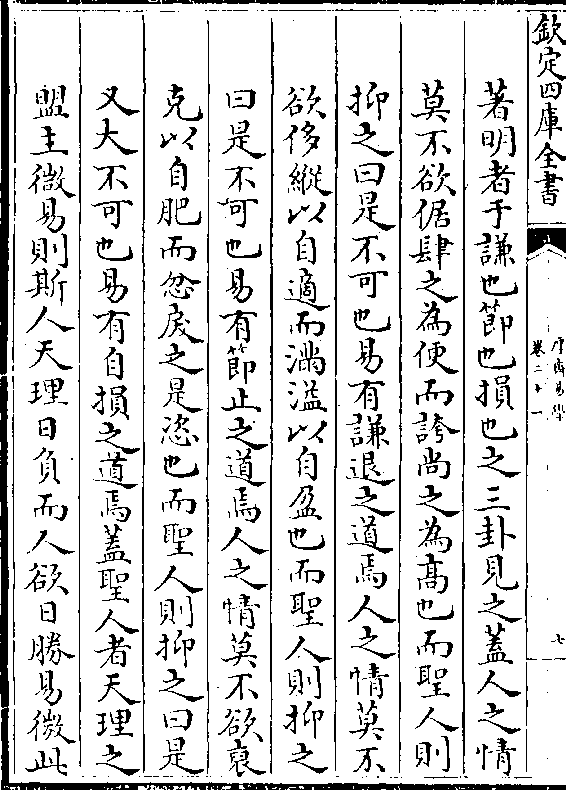 欽定四庫全書
厚齋易學
卷二十一
七
著明者于謙也節也損也之三卦見之蓋人之情
莫不欲倨肆之為便而誇尚之為髙也而聖人則
抑之曰是不可也易有謙退之道焉人之情莫不
欲侈縱以自適而滿溢以自盈也而聖人則抑之
曰是不可也易有節止之道焉人之情莫不欲裒
克以自肥而忿戾之是恣也而聖人則抑之曰是
又大不可也易有自損之道焉蓋聖人者天理之
盟主微易則斯人天理日負而人欲日勝易微此